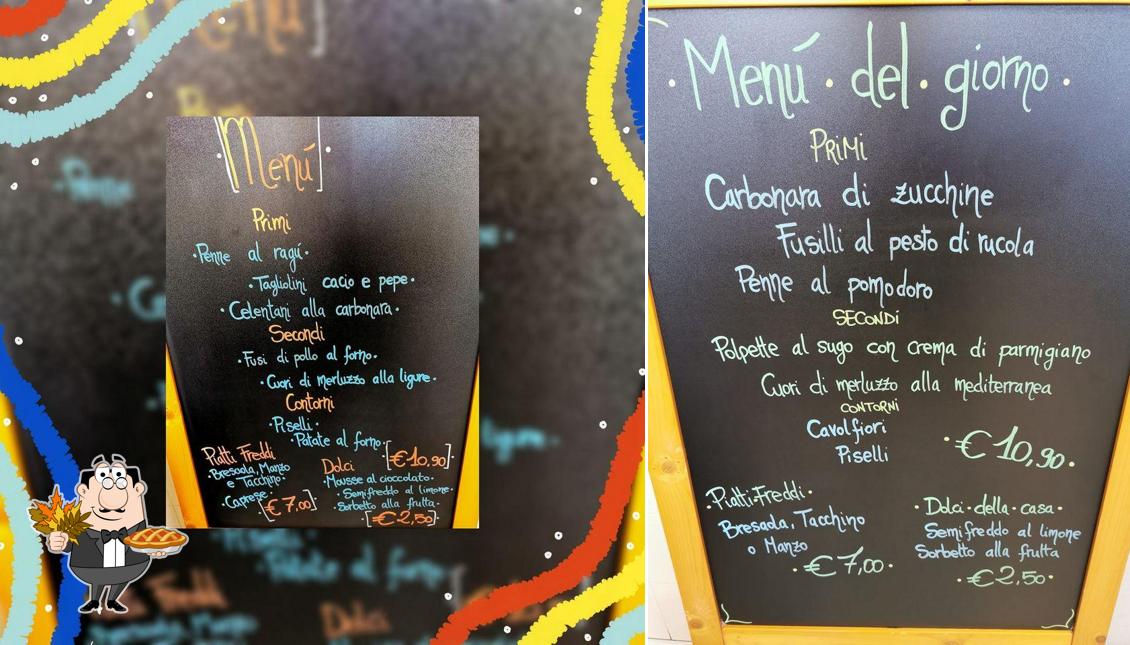 Menú
Primi
·Penne al ragú·
·Tagliolini cacio e pepe·
·Celentani alla carbonara·
Secondi
·Fusi di pollo al forno·
·Cuori di merluzzo alla ligure·
Contorni
·Piselli·
·Patate al forno·
[€10,90]·
Piatti Freddi
·Bresaola, Manzo
e Tacchino·
·Caprese·
[€7,00]·
Dolci
·Mousse al cioccolato·
·Semifreddo al limone·
·Sorbetto alla frutta·
·[€2,50]·
·Menú·del·giorno·
PRiMi
Carbonara di zucchine
Fusilli al pesto di rucola
Penne al pomodoro
SECONDi
Polpette al sugo con crema di parmigiano
Cuori di merluzzo alla mediterranea
CONTORNi
Cavolfiori
Piselli
·€10,90·
·Piatti·Freddi·
Bresada, Tacchino
o Manzo
·€7,00·
·Dolci·della·casa·
Semifreddo al limone
Sorbetto alla frutta
·€2,50·